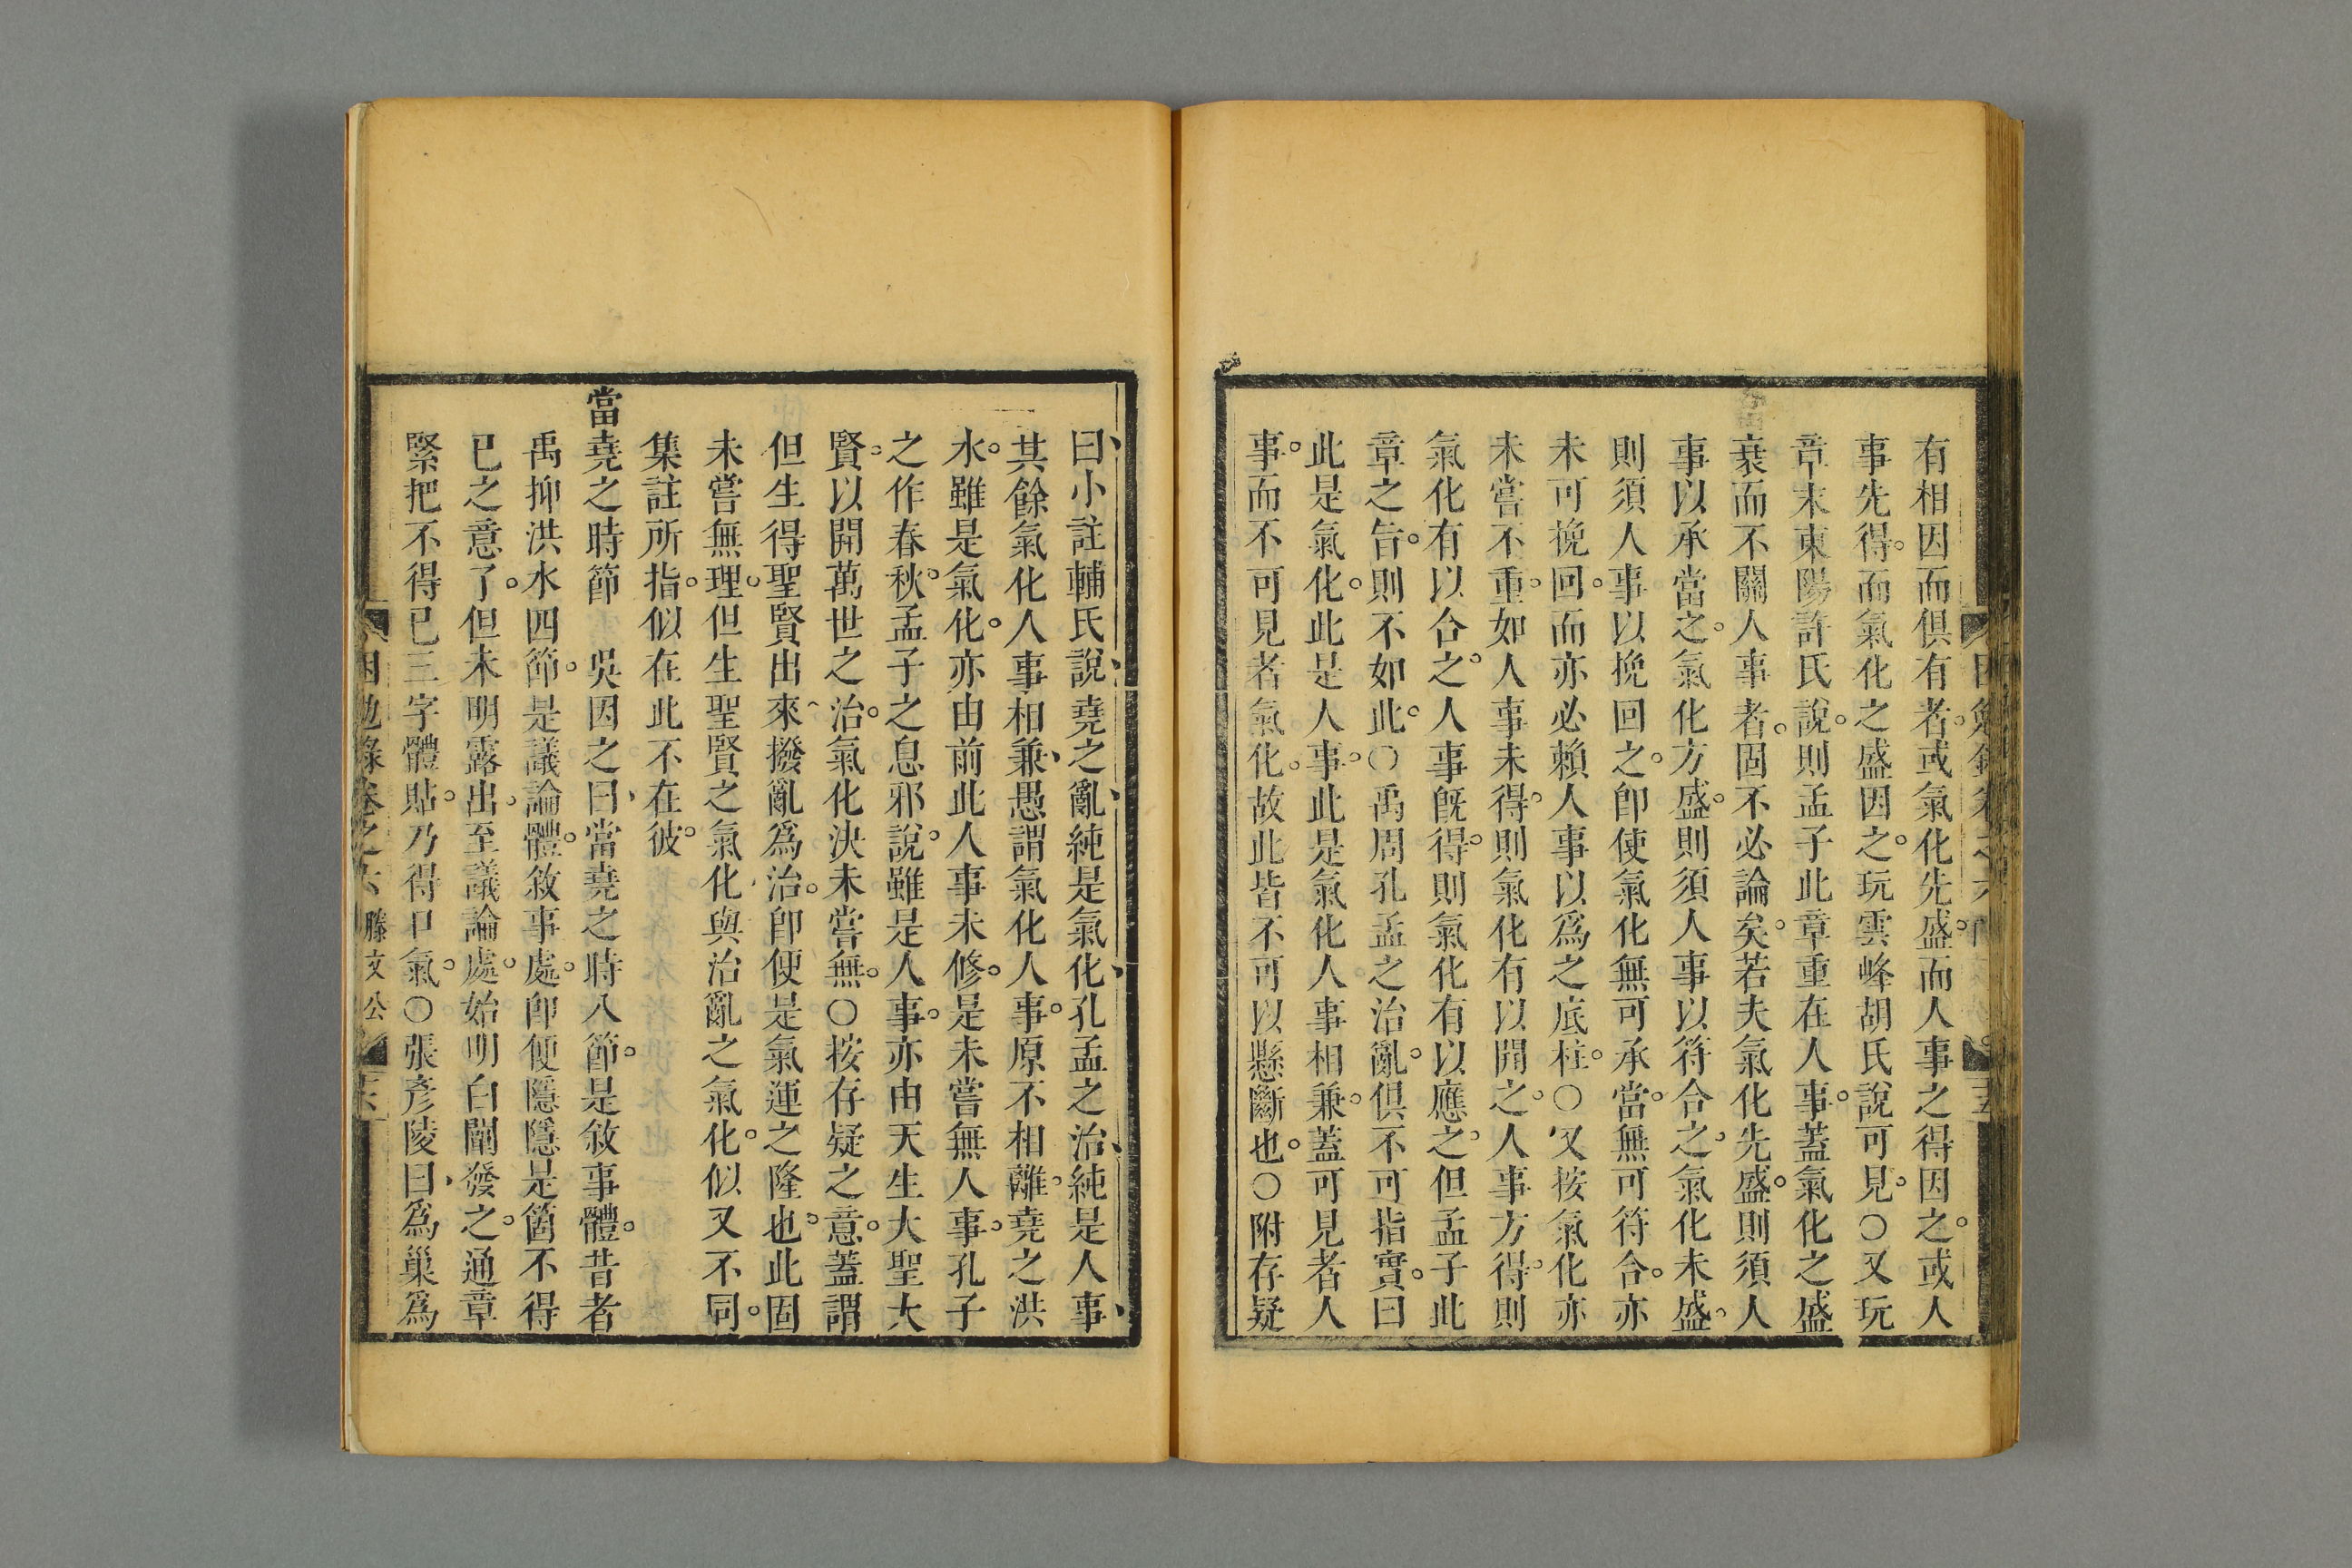 有相因而俱有者。或氣化先盛。而人事之得因之。或人
事先得。而氣化之盛因之。玩雲峰胡氏說可見。○又玩
章末東陽許氏說。則孟子此章重在人事。蓋氣化之盛
衰而不關人事者。固不必論矣。若夫氣化先盛。則須人
事以承當之。氣化方盛。則須人事以符合之。氣化未盛。
則須人事以挽回之。卽使氣化無可承當。無可符合。亦
未可挽回。而亦必賴人事以爲之底柱。○又按氣化亦
未嘗不重。如人事未得。則氣化有以開之。人事方得。則
氣化有以合之。人事旣得。則氣化有以應之。但孟子此
章之旨。則不如此。○禹周孔孟之治亂。俱不可指實。曰
此是氣化。此是人事。此是氣化人事相兼。蓋可見者人
事。而不可見者氣化。故此皆不可以懸斷也。○附存疑
曰、小註輔氏說、堯之亂、純是氣化、孔孟之治、純是人事、
其餘氣化人事相兼、愚謂氣化人事。原不相離。堯之洪
水。雖是氣化。亦由前此人事未修。是未嘗無人事。孔子
之作春秋。孟子之息邪說。雖是人事。亦由天生大聖大
賢。以開萬世之治。氣化決未嘗無。○按存疑之意。蓋謂
但生得聖賢出來、撥亂爲治。卽便是氣運之隆也。此固
未嘗無理。但生聖賢之氣化、與治亂之氣化。似又不同。
集註所指。似在此不在彼。
當堯之時節　吳因之曰、當堯之時八節。是敘事體。昔者
禹抑洪水四節。是議論體。敘事處。卽便隱隱是箇不得
已之意了。但未明露出。至議論處。始明白闡發之。通章
緊把不得已三字體貼。乃得口氣。○張彥陵曰、爲巢爲
困勉錄卷之六　滕文公